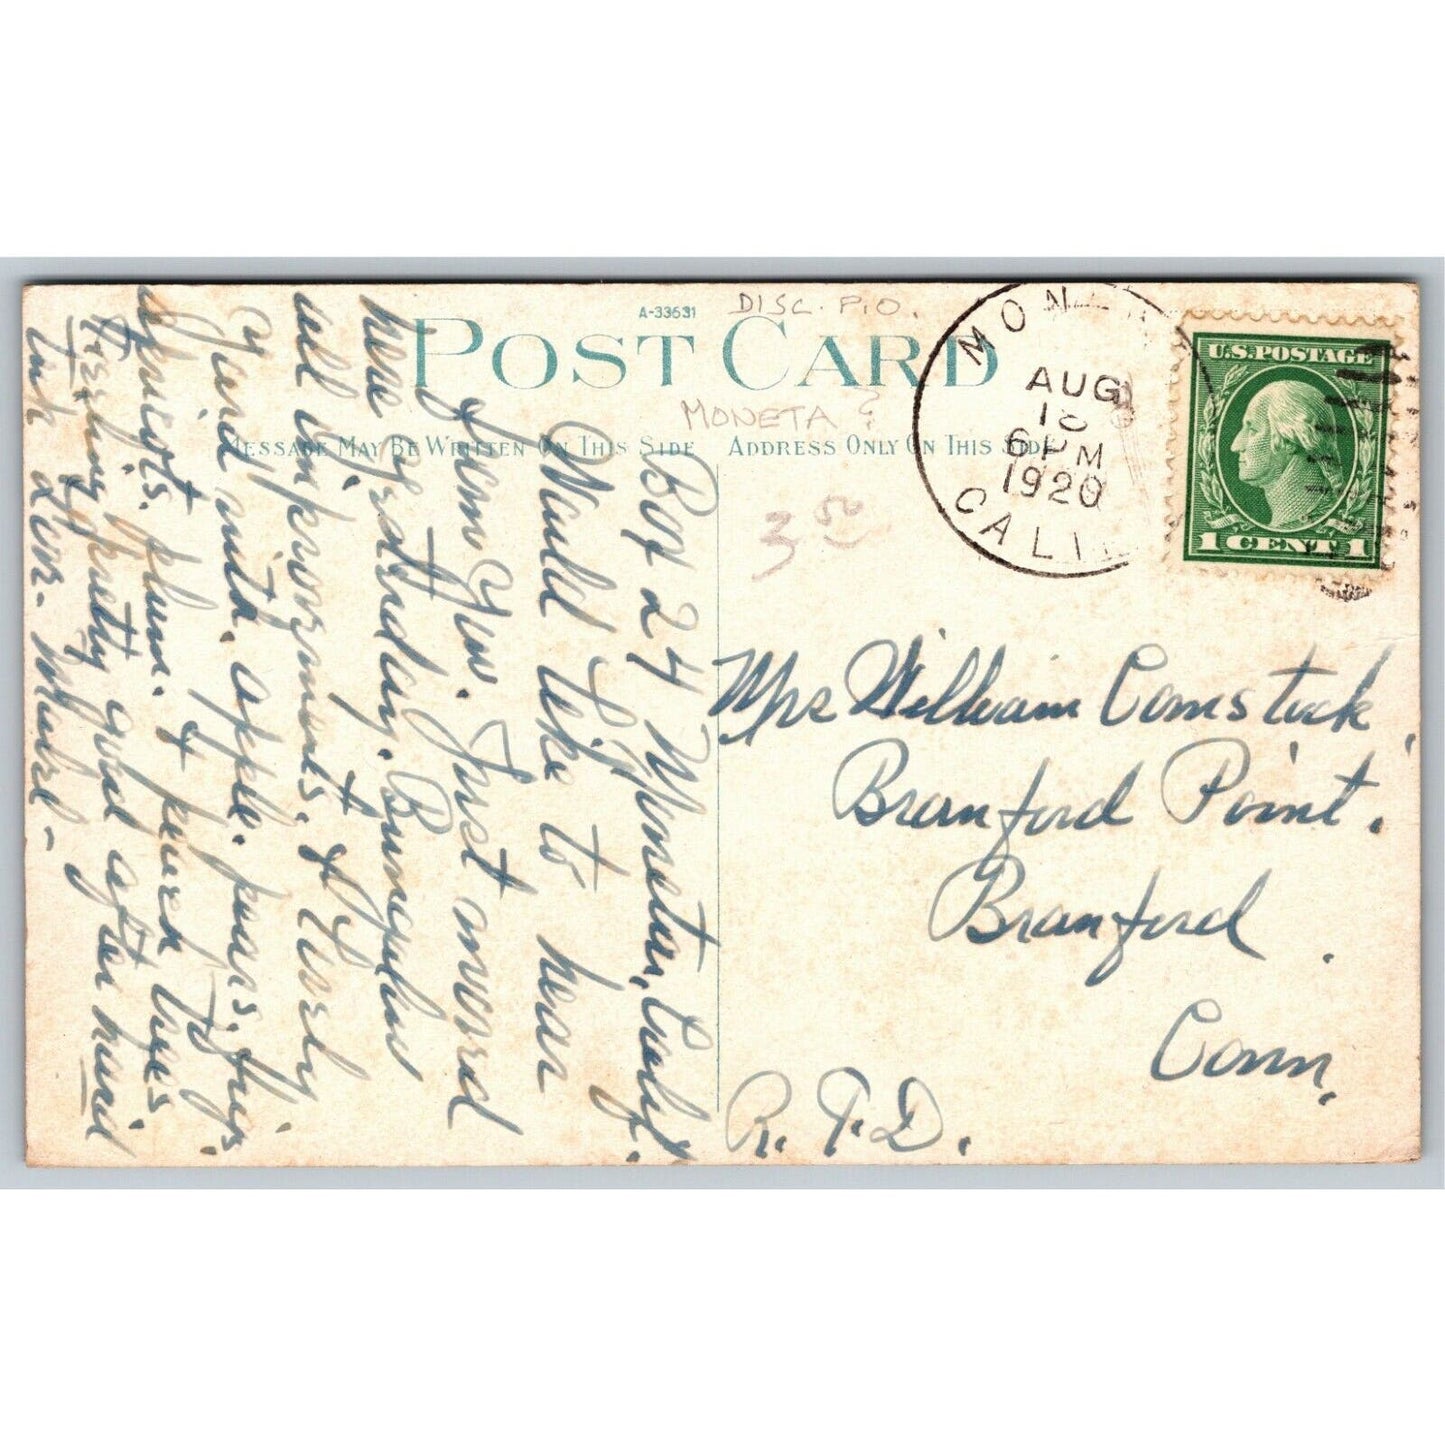 A-33631
DISC. P.O.
POST CARD
MONETA
MESSAGE MAY BE WRITTEN ON THIS SIDE
ADDRESS ONLY ON THIS SIDE
MONET
AUG
18
6 PM
1920
CALIF
U.S. POSTAGE
1 CENT 1
3 50
Box 24 Moneta, Calif.
Would like to hear
from you. Just moved
here yesterday. Bungalow
all improvements. & Lovely
yard with apple. pears. figs
apricots. plum. & peach trees
Feeling pretty good after hard
Mrs William Comstock
Branford Point.
Branford.
Conn.
R.F.D.